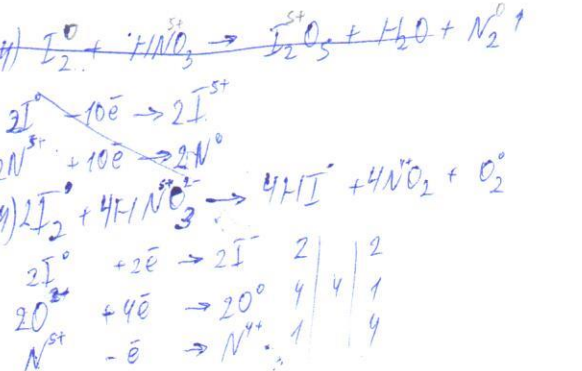 4) I₂⁰ + HN⁵⁺O₃ → I₂⁵⁺O₅ + H₂O + N₂⁰↑
2I⁰ -10ē → 2I⁵⁺
2N⁵⁺ +10ē → 2N⁰
4) 2I₂⁰ + 4HN⁵⁺O₃²⁻ → 4HI⁻ + 4N⁴⁺O₂ + O₂⁰
2I⁰ +2ē → 2I⁻ 2 | | 2
2O²⁺ +4ē → 2O⁰ 4 | 4 | 1
N⁵⁺ -ē → N⁴⁺. 1 | | 4